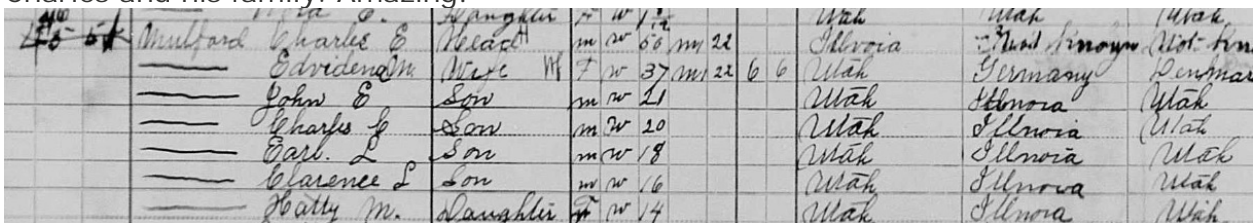 Charles and his family. Amazing.
C. Daughter F W 1 Utah Utah Utah
Mulford Charles E Head m w 56 m1 22 Illnoia Not Known Not Kn
—— Edvidena M. Wife F w 37 m1 22 6 6 Utah Germany Denmar
—— John E Son m w 21 Utah Illnoia Utah
—— Charles E Son m w 20 Utah Illnoia Utah
—— Earl. L Son m w 18 Utah Illnoia Utah
—— Clarence L Son m w 16 Utah Illnoia Utah
—— Hatty M. Daughter F w 14 Utah Illnoia Utah